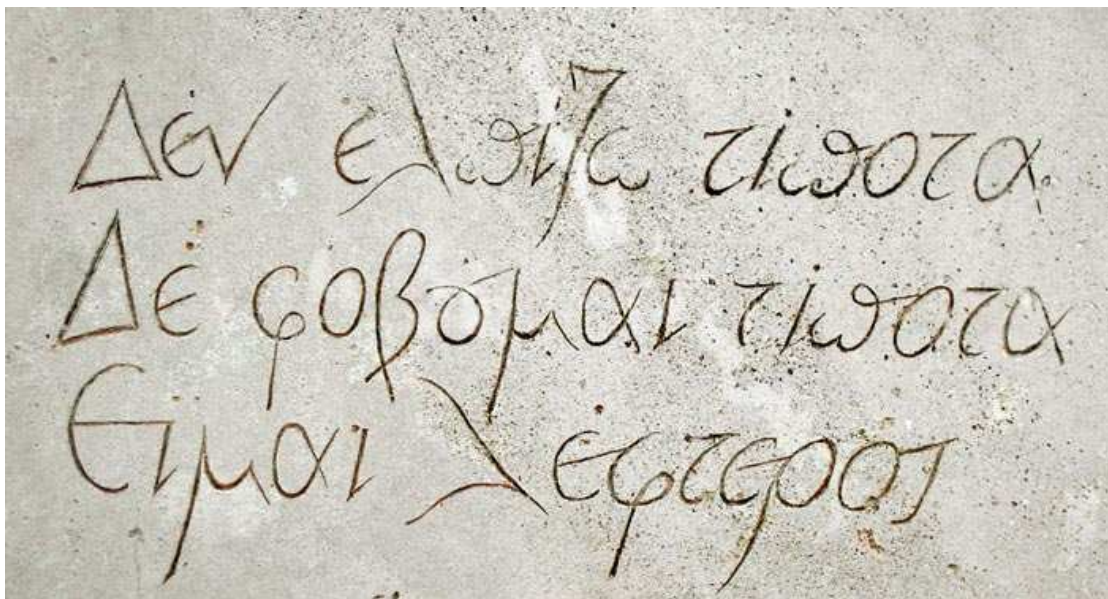 Δεν ελπίζω τίποτα
Δε φοβόμαι τίποτα
Είμαι λέφτερος